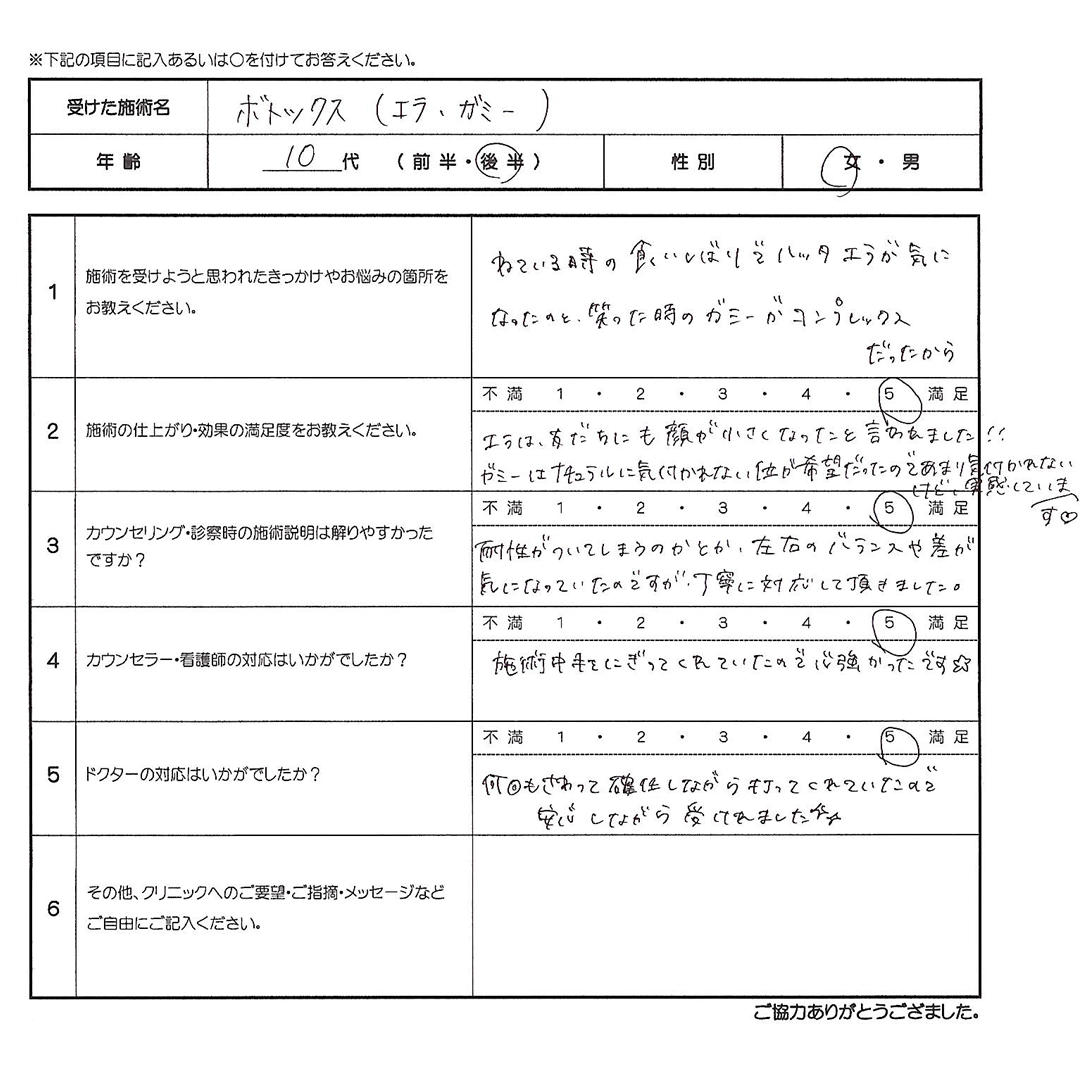 ※下記の項目に記入あるいは○を付けてお答えください。
受けた施術名 ボトックス（エラ、ガミー）
年齢 10代 （前半・後半） 性別 女・男
1 施術を受けようと思われたきっかけやお悩みの箇所を
お教えください。
ねている時の食いしばりでハッタエラが気に
なったのと、笑った時のガミーがコンプレックス
だったから
2 施術の仕上がり・効果の満足度をお教えください。
不満 1 ・ 2 ・ 3 ・ 4 ・ 5 満足
エラは、友だちにも顔が小さくなったと言われました!!
ガミーはナチュラルに気付かれない位が希望だったのであまり気付かれない
けど、実感していま
す♡
3 カウンセリング・診察時の施術説明は解りやすかった
ですか？
不満 1 ・ 2 ・ 3 ・ 4 ・ 5 満足
耐性がついてしまうのかとか、左右のバランスや差が
気になっていたのですが、丁寧に対応して頂きました。
4 カウンセラー・看護師の対応はいかがでしたか？
不満 1 ・ 2 ・ 3 ・ 4 ・ 5 満足
施術中手をにぎってくれていたので心強かったです☆
5 ドクターの対応はいかがでしたか？
不満 1 ・ 2 ・ 3 ・ 4 ・ 5 満足
何回もさわって確任しながら打ってくれていたので
安心しながら受けれました
6 その他、クリニックへのご要望・ご指摘・メッセージなど
ご自由にご記入ください。
ご協力ありがとうござました。